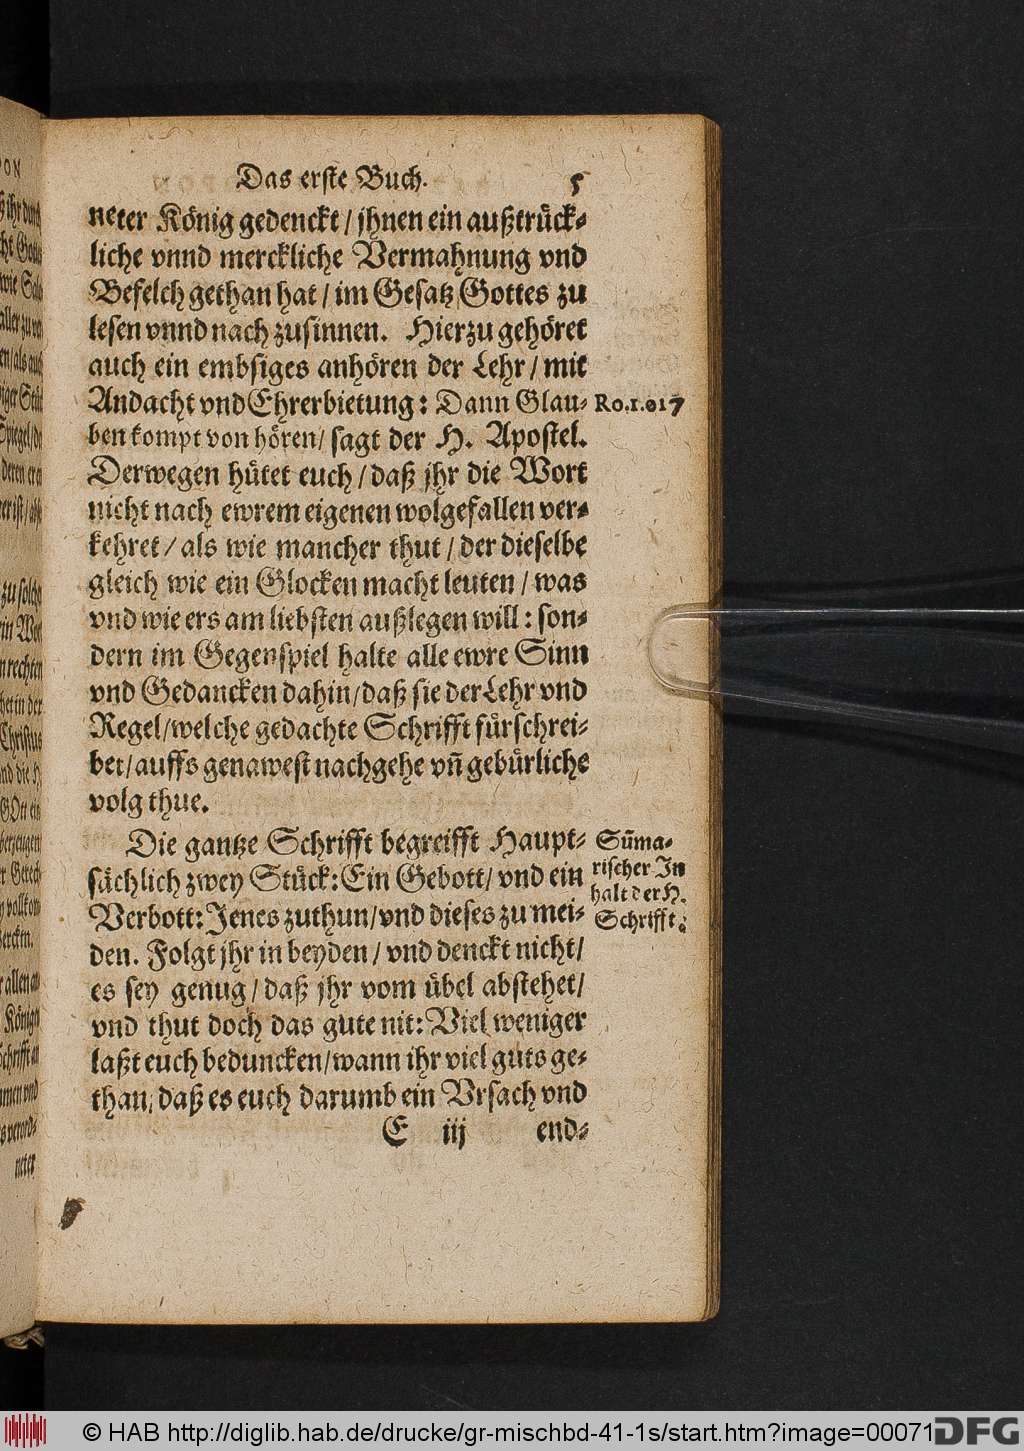 Das erste Buch. 5
neter König gedenckt / jhnen ein außtrück-
liche vnnd merckliche Vermahnung vnd
Befelch gethan hat / im Gesatz Gottes zu
lesen vnnd nach zusinnen. Hierzu gehöret
auch ein embsiges anhören der Lehr / mit
Andacht vnd Ehrerbietung: Dann Glau-
Ro.1.017
ben kompt von hören / sagt der H. Apostel.
Derwegen hütet euch / daß jhr die Wort
nicht nach ewrem eigenen wolgefallen ver-
kehret / als wie mancher thut / der dieselbe
gleich wie ein Glocken macht leuten / was
vnd wie ers am liebsten außlegen will: son-
dern im Gegenspiel halte alle ewre Sinn
vnd Gedancken dahin / daß sie der Lehr vnd
Regel / welche gedachte Schrifft fürschrei-
bet / auffs genawest nachgehe vn̄ gebürliche
volg thue.
Die gantze Schrifft begreifft Haupt-
sächlich zwey Stück: Ein Gebott / vnd ein
Verbott: Jenes zuthun / vnd dieses zu mei-
den. Folgt jhr in beyden / vnd denckt nicht /
es sey genug / daß jhr vom übel abstehet /
vnd thut doch das gute nit: Viel weniger
laßt euch beduncken / wann ihr viel guts ge-
than, daß es euch darumb ein Vrsach vnd
Sūma-
rischer In
halt der H.
Schrifft.
E iij end-
© HAB http://diglib.hab.de/drucke/gr-mischbd-41-1s/start.htm?image=00071
DFG